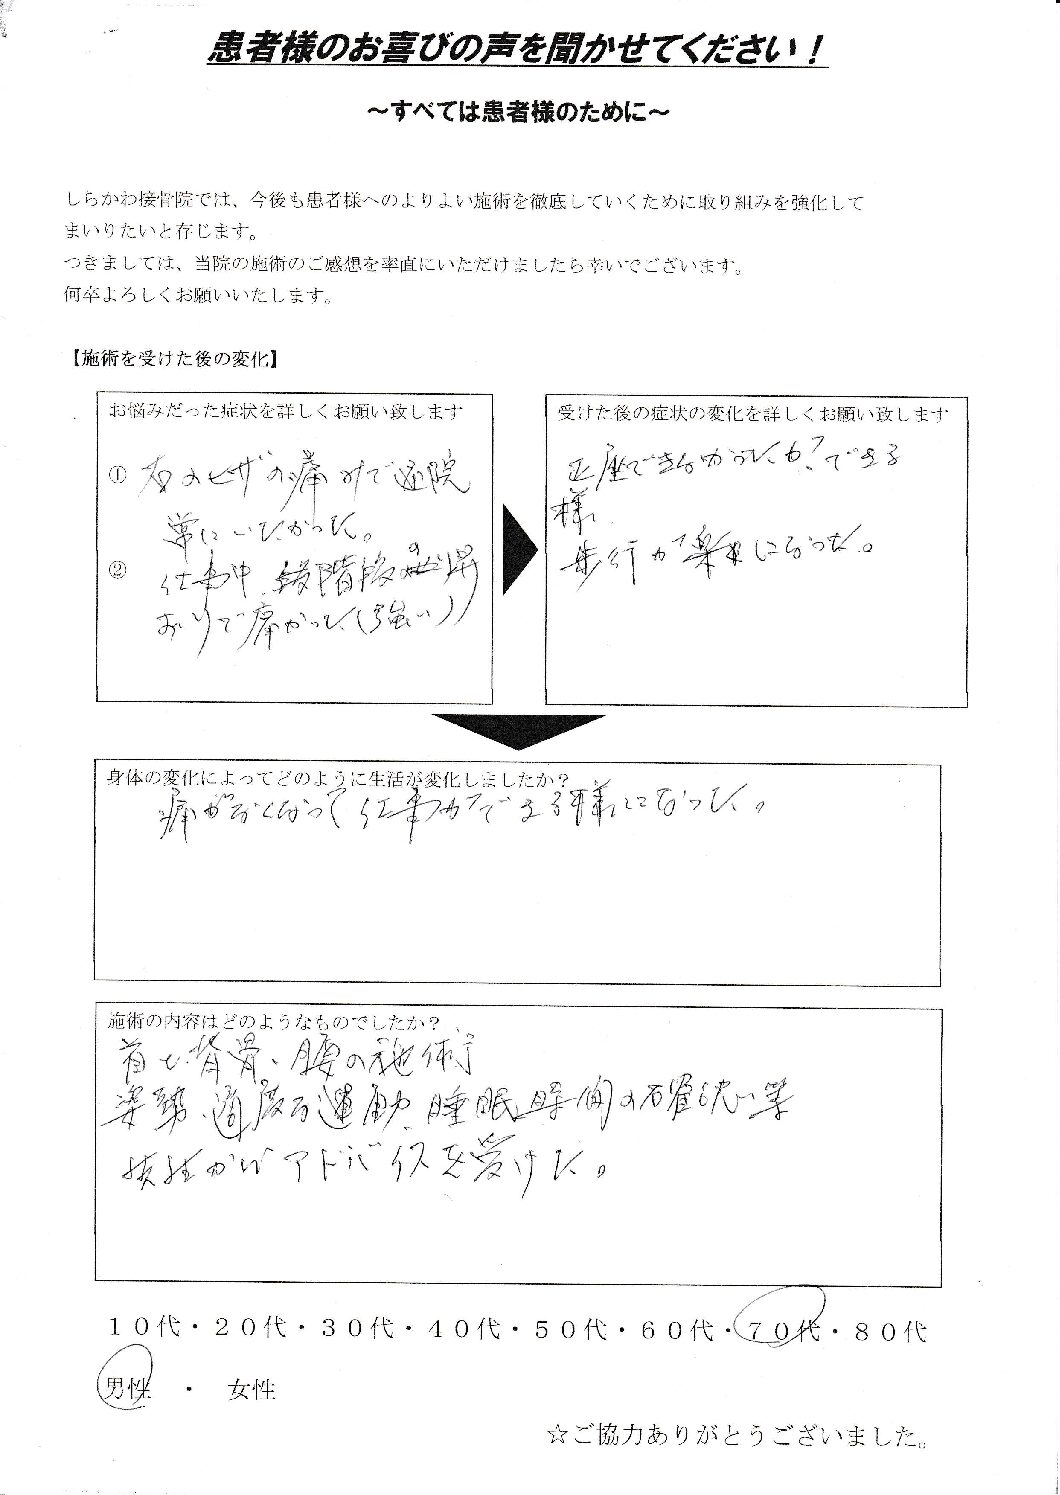 患者様のお喜びの声を聞かせてください！
～すべては患者様のために～
しらかわ接骨院では、今後も患者様へのよりよい施術を徹底していくために取り組みを強化して
まいりたいと存じます。
つきましては、当院の施術のご感想を率直にいただけましたら幸いでございます。
何卒よろしくお願いいたします。
【施術を受けた後の変化】
お悩みだった症状を詳しくお願い致します
① 右のヒザの痛みで通院
常にいたかった。
② 仕事中 階段の昇
おりで痛かった（強い）
受けた後の症状の変化を詳しくお願い致します
正座できなかったが？できる
様
歩行が楽になった。
身体の変化によってどのように生活が変化しましたか？
痛がなくなって仕事ができる様になった。
施術の内容はどのようなものでしたか？
首と背骨、腰の施術
姿勢、適度な運動、睡眠時間の確認等
アドバイスを受けた。
１０代・２０代・３０代・４０代・５０代・６０代・７０代・８０代
男性 ・ 女性
☆ご協力ありがとうございました。